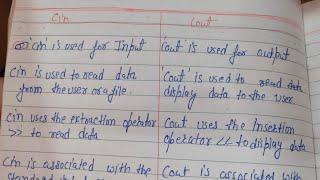 Cin
Cout
Cin is used for Input
Cout is used for output
Cin is used to read data
from the user or a file.
Cout is used to
display data to the user.
Cin uses the extraction operator
>> to read data
Cout uses the Insertion
operator << to display data
Cin is associated with the
Cout is associated with